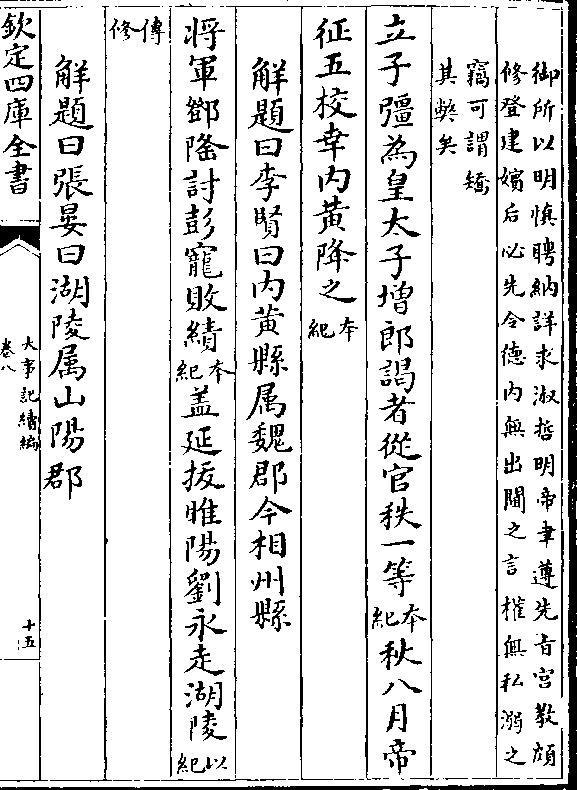 御所以明慎聘納詳求淑哲明帝聿遵先旨宮教頗
修登建嬪后必先令德内無出閫之言權無私溺之
竊可謂矯
其弊矣
立子彊為皇太子增郎謁者從官秩一等本紀秋八月帝
征五校幸内黄降之本紀
解題曰李賢曰内黄縣属魏郡今相州縣
將軍鄧隆討彭寵敗績本紀盖延拔睢陽劉永走湖陵以紀
傳修
解題曰張晏曰湖陵属山陽郡
欽定四庫全書
大事記續編
卷八
十五